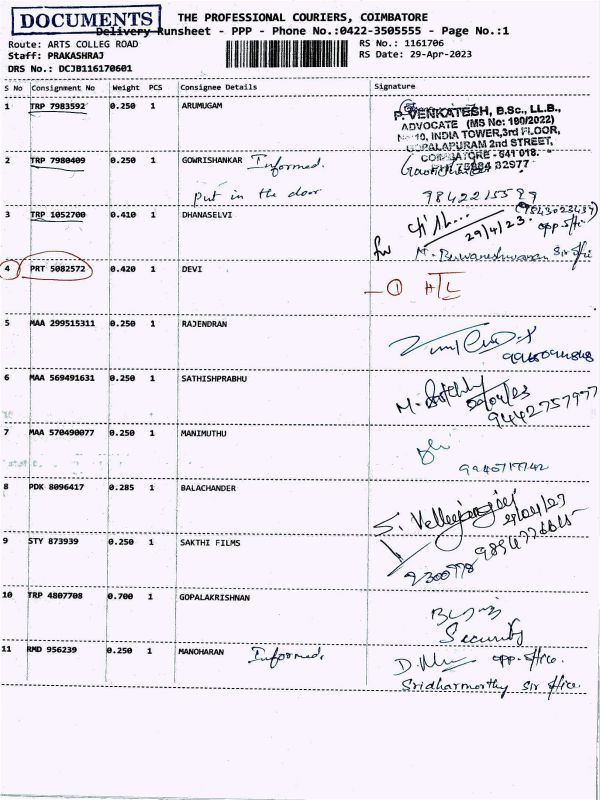 DOCUMENTS
THE PROFESSIONAL COURIERS, COIMBATORE
Delivery Runsheet - PPP - Phone No.:0422-3505555 - Page No.:1
Route: ARTS COLLEG ROAD
RS No.: 1161706
Staff: PRAKASHRAJ
RS Date: 29-Apr-2023
DRS No.: DCJB116170601
S No Consignment No Weight PCS Consignee Details Signature
1 TRP 7983592 0.250 1 ARUMUGAM
P. VENKATESH, B.Sc., LL.B.,
ADVOCATE (MS No: 190/2022)
No 10, INDIA TOWER, 3rd FLOOR,
GOPALAPURAM 2nd STREET,
COIMBATORE - 641 018.
2 TRP 7980409 0.250 1 GOWRISHANKAR Informed.
put in the door
3 TRP 1052700 0.410 1 DHANASELVI
29/4/23
opp. office
for
4 PRT 5082572 0.420 1 DEVI
1
5 MAA 299515311 0.250 1 RAJENDRAN
6 MAA 569491631 0.250 1 SATHISHPRABHU
9442757977
7 MAA 570490077 0.250 1 MANIMUTHU
8 PDK 8096417 0.285 1 BALACHANDER
9 STY 873939 0.250 1 SAKTHI FILMS
10 TRP 4807708 0.700 1 GOPALAKRISHNAN
Security
11 RMD 956239 0.250 1 MANOHARAN Informed.
opp. office.
Sridharmorthy sir office.